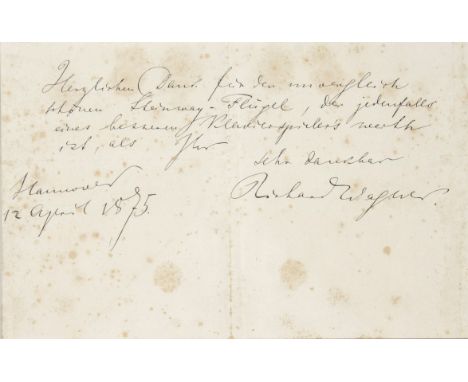 Herzlichen Dank für den unvergleich
schönen Steinway-Flügel, der jedenfalls
eines besseren Klavierspielers werth
ist, als Ihr
sehr dankbar
Richard Wagner.
Hannover
12 April 1875.